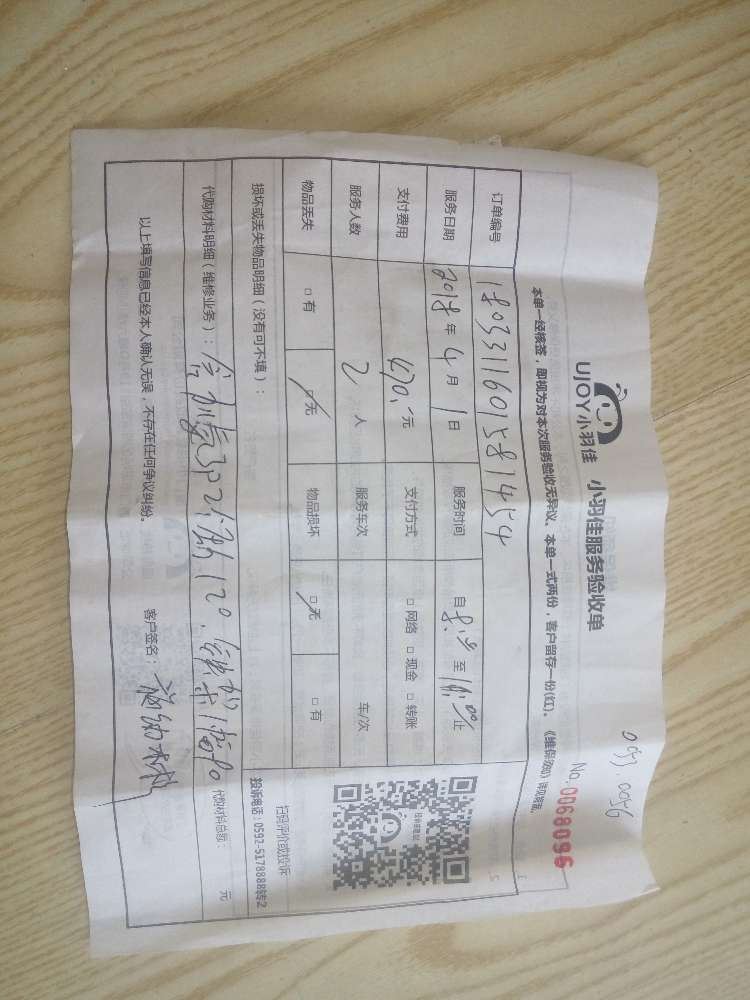 0055.0056
UJOY小羽佳 小羽佳服务验收单
No.0068096
本单一经核签，即视为对本次服务验收无异议。本单一式两份，客户留存一份(红)。《维保须知》详见背面。
订单编号 180331160158 1454
服务日期 2018年4月1日 服务时间 自8:00至18:00止
支付费用 470.-元 支付方式 □网络 □现金 □转账
服务人数 2人 服务车次 车/次
物品丢失 □有 □无 物品损坏 □无 □有
损坏或丢失物品明细（没有可不填）：
扫码评价或投诉
投诉电话：0592-5178888转2
代购材料明细（维修业务）： 120. 代购材料总额： 元
以上填写信息已经本人确认无误，不存在任何争议纠纷。 客户签名：